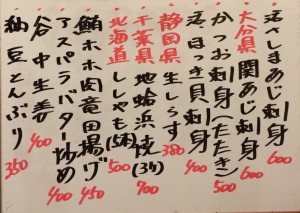 活〆さしまあじ刺身 600
大分県 関あじ刺身 600
かつお刺身(たたき) 500
活ほっき貝刺身 400
静岡県 生しらす 380
千葉県 地蛤浜焼(3ケ) 700
北海道 ししゃも(5本) 500
鮪ホホ肉竜田揚げ 450
アスパラバター炒め 400
谷中生姜 400
納豆とんぶり 350